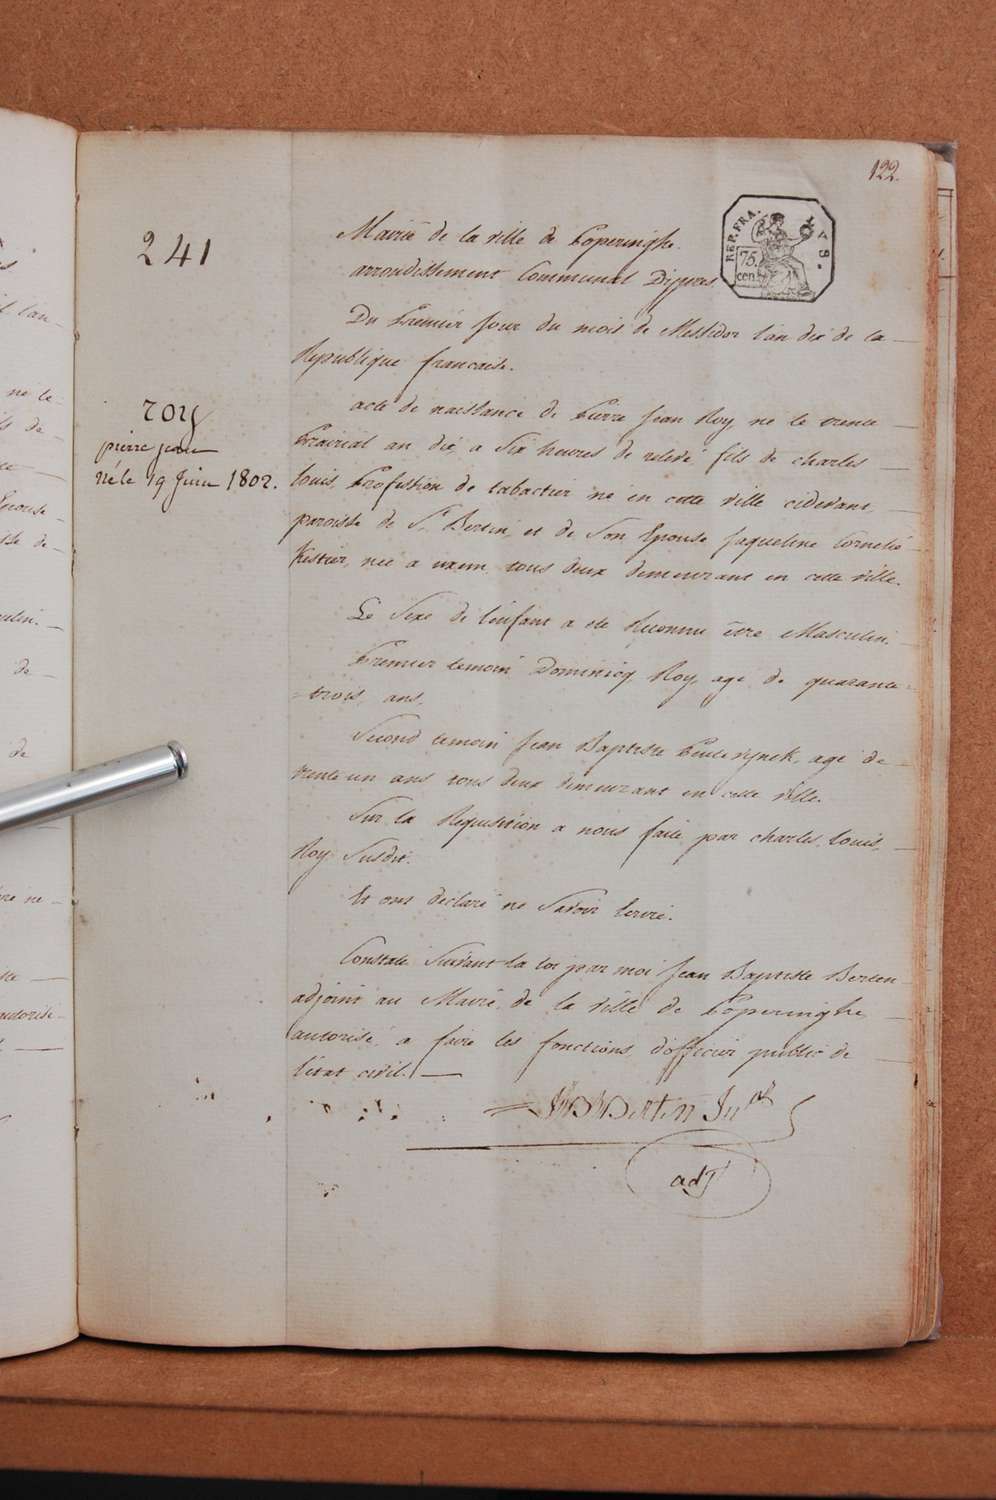 122.
REP. FRA. LYS.
75. cen.
241
Mairie de la ville de Poperinghe.
arrondissement Communal Dippres
Du Premier Jour du mois de Messidor l'an dix de la
Republique francaise.
roy
pierre jean
né le 19 Juin 1802.
acte de naissance de Pierre Jean Roy, né le trente
Prairial an dix, a Six heures de relevé, fils de charles
louis, Profession de tabactier né en cette ville cidevant
paroisse de St Bertin, et de Son Epouse Jaqueline Cornelie
née a tous deux demeurant en cette ville.
Le Sexe de l'enfant a eté Reconnu être Masculin.
Premier temoin, Dominicq Roy, agé de quarante
trois, ans,
Second temoin Jean Baptiste agé de
trente un ans tous deux demeurant en cette ville.
Sur la Requisition a nous faite par charles, louis,
Roy Susdit.
Et ont declaré ne Savoir Ecrire.
Constaté Suivant la loi par moi Jean Baptiste Berten
adjoint au Maire, de la ville de Poperinghe,
autorisé, a faire les fonctions, d'officier public de
l'état civil.
JB Berten
adj